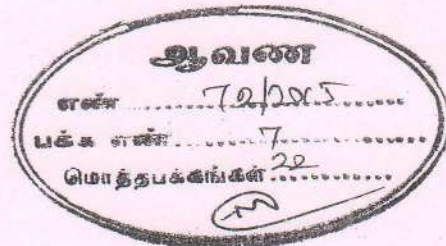 ஆவண
எண் ........72/2015........
பக்க எண்........7........
மொத்தபக்கங்கள் 22........